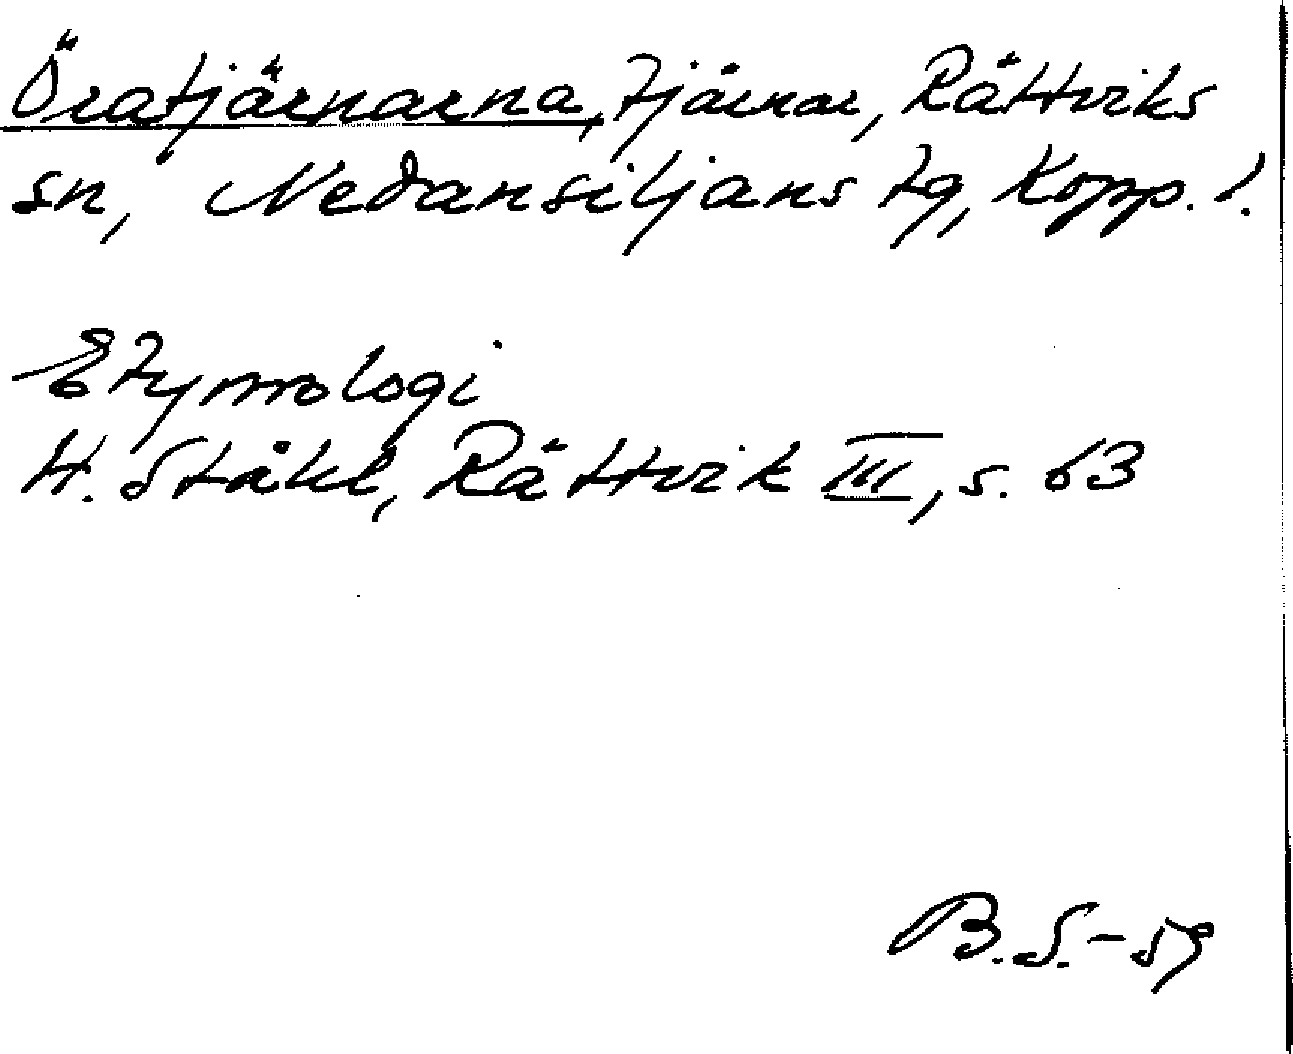 Öratjärnarna, tjärnar, Rättviks
sn, Nedansiljans tg, Kopp. l.
Etymologi
H. Ståhl, Rättvik III, s. 63
B.S.-59